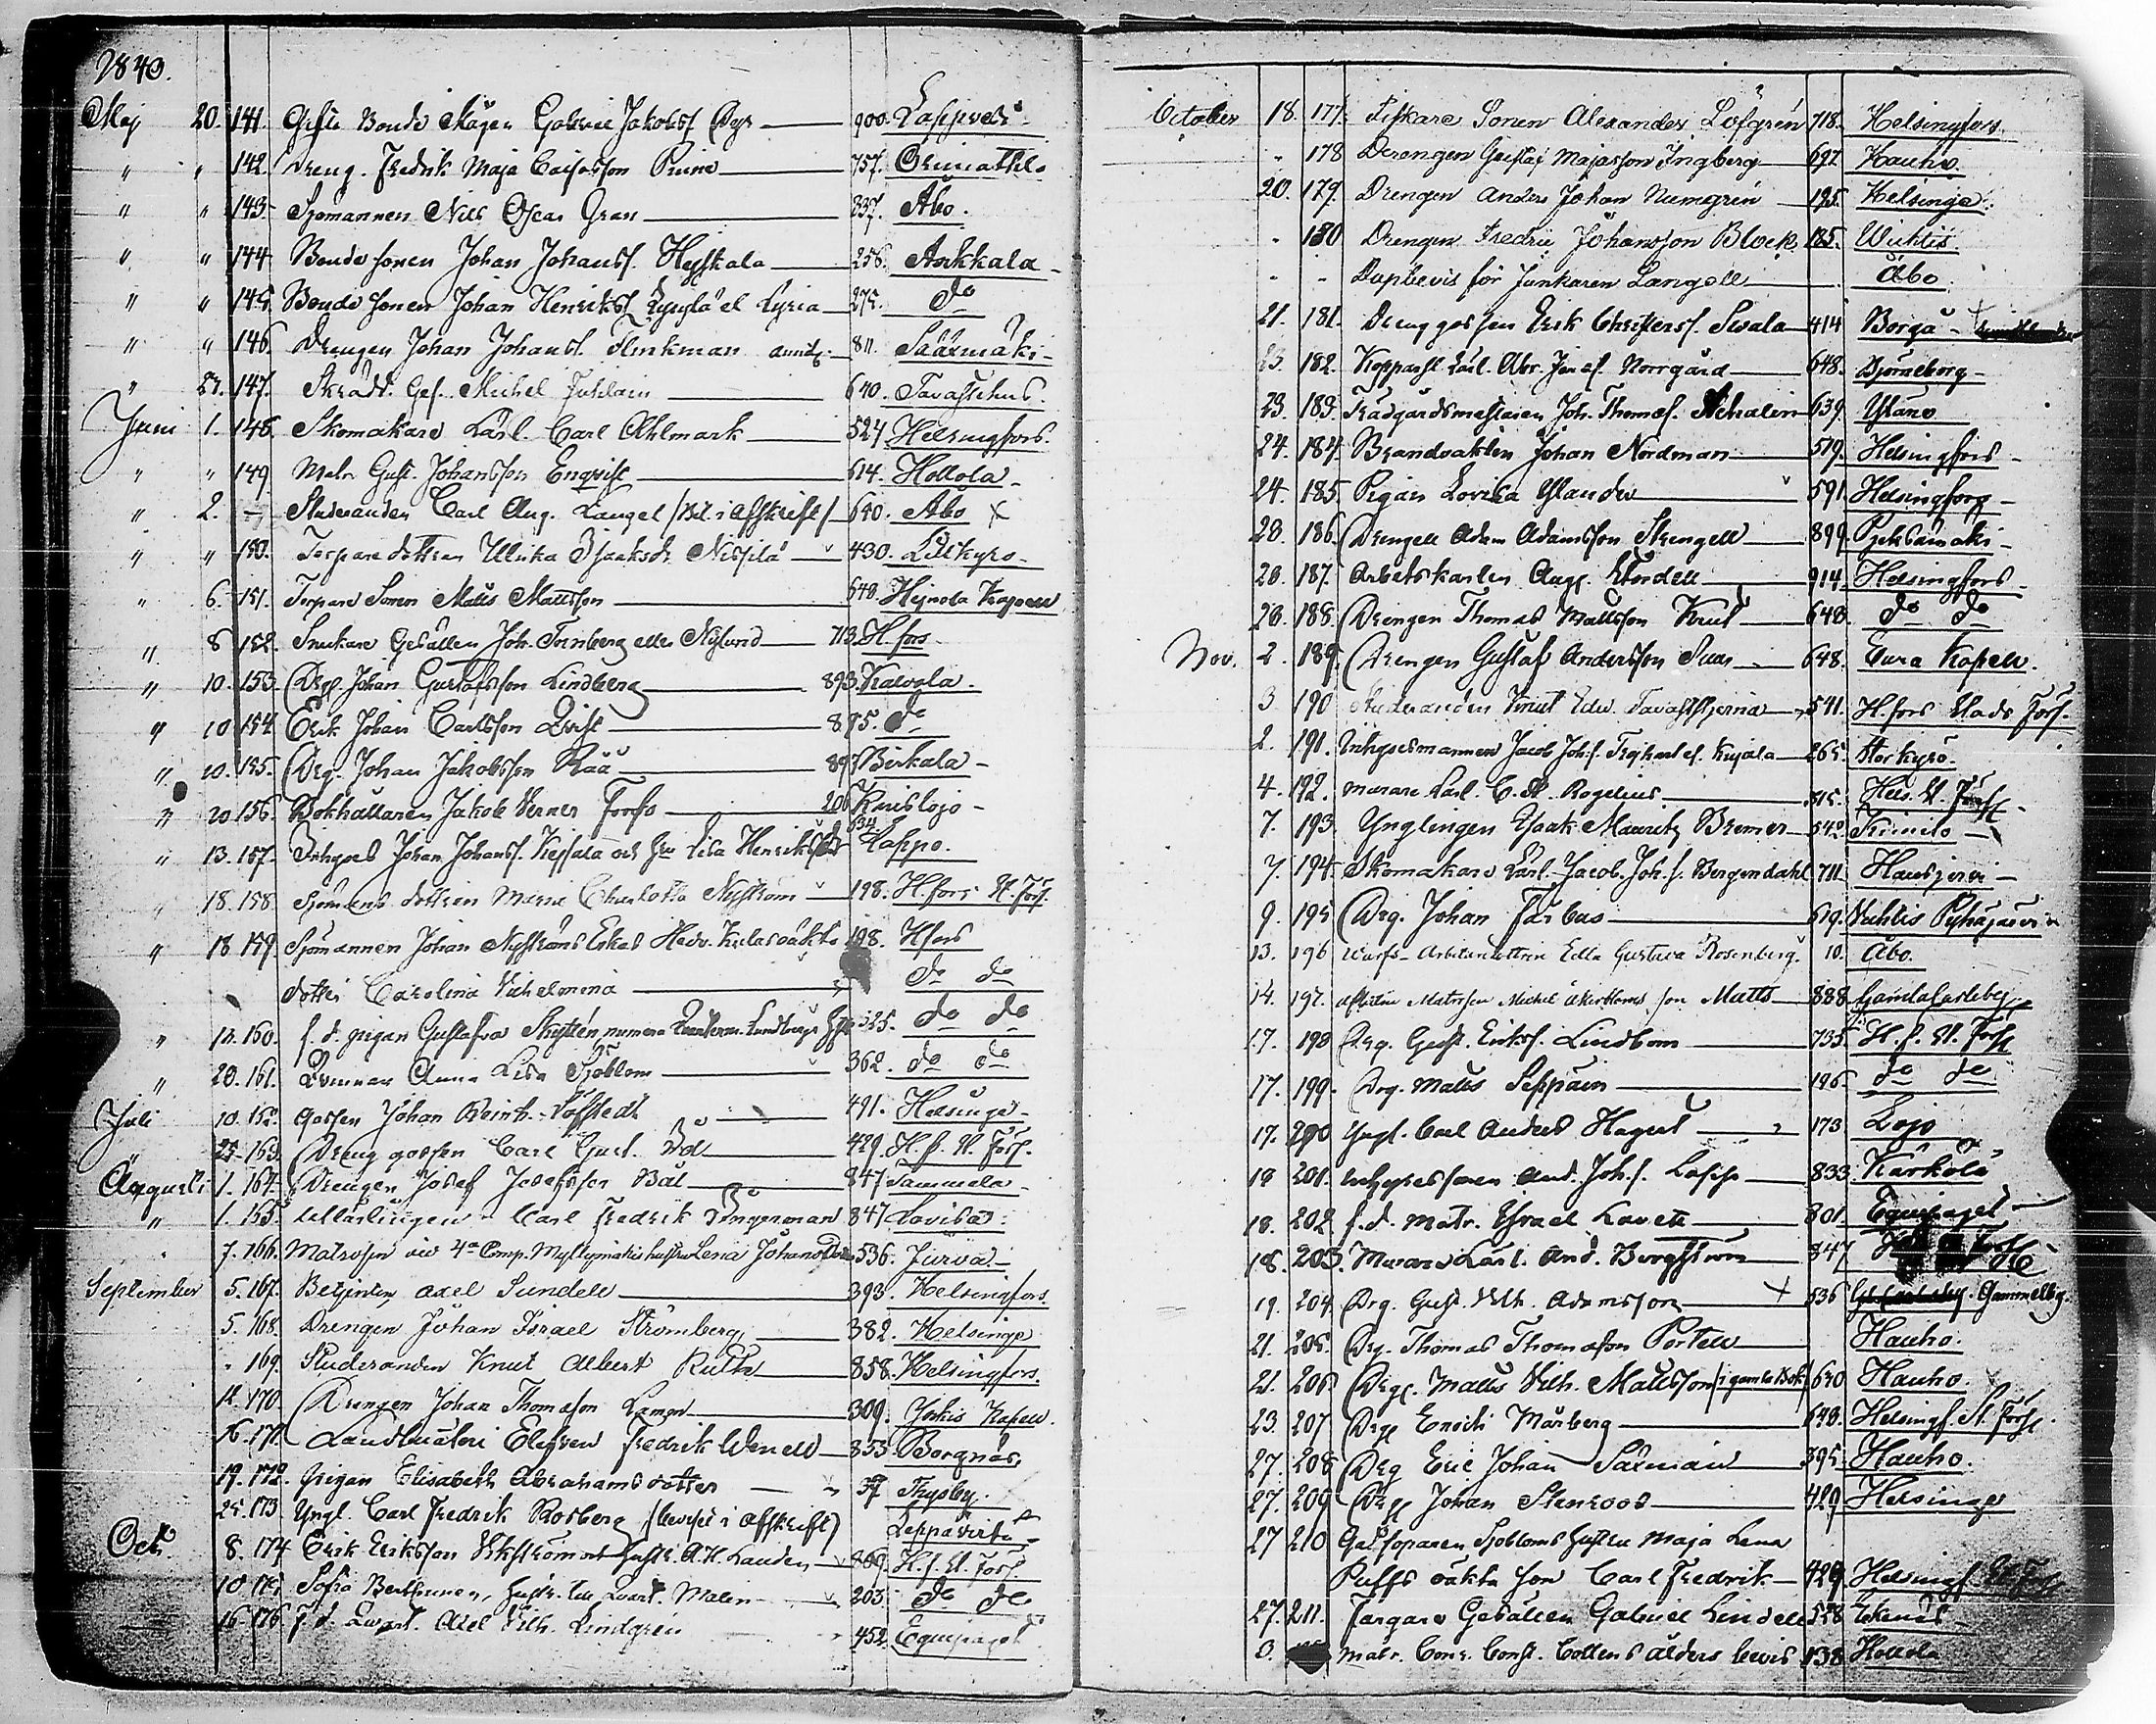 1840.
Maj 20. 141. Bonde Mågen Gabriel Jakobss Dyr 900. Lappvedi
" " 142. Dreng. Fredrik Maja Caisasson Prins 757. Orimattila
" " 143. Sjömannen Nils Oscar Gran 337. Åbo.
" " 144. Bonde sonen Johan Johanss. Heiskala 256. Asikkala
" " 145. Bonde sonen Johan Henrikss. el Lyria 275. do
" " 146. Drengen Johan Johanss. Flinkman 811. Sääxmäki
" 27. 147. Skrädd. Ges. Michel Juhlain 640. Tavastehus.
Juni 1. 148. Skomakare Lärl. Carl Ahlmark 524 Helsingfors.
" " 149 Matr. Gust. Johansson Enqvist 614. Hollola
" 2. — Studeranden Carl Aug. Langel /Bet. i Afskrift/ 640. Åbo
" " 150. Torpare dottren Ulrika Isaksdr. Nissilä 430. Lillkyro
" 6. 151. Torpare Sonen Matts Mattsson 640. Hejnola Kapell
" 8 152. Snickare Gesällen Joh. Tornberg eller Nylund 713. H.fors
" 10. 153. Dg. Johan Gustafsson Lindberg 893. Kalvola.
" 10 154 Erik Johan Carlsson Qvist 895. do
" 10. 155. Drg. Johan Jakobsson Rää 89 Birkala
" 20 156. Bokhållaren Jakob Verner Forss 206 Karislojo
" 13. 157. Inhyses Johan Johanss. Kessala och hu Lisa Henriksdr 634 Lappo.
" 18. 158 Sjömans dottren Maria Charlotta Nyström 198. H.fors St. förs.
" 18 159. Sjömannen Johan Nyströms Enkas Hedv. oäkta 198. Hfors
dotter Carolina Vilhelmina do do
" 12. 160. f. d. pigan Gustafva Skyttén, numera Lundbergs 325. do do
" 20. 161. Qvinnan Anna Lisa Sjöblom 362. do do
Juli 10. 162. Gossen Johan Reinh. Löfstedt 491. Helsinge
25. 163. Dreng gossen Carl Gust. 429. H. f. St. förs.
Augusti 1. 164. Drengen Josef Josefsson Bål 847 Tammela
" 1. 165. Carl Fredrik Ångerman 847 Lovisa.
7. 166. Matrosen vid 4e Comp. hustru Lena Johansdotter 536. Jurva
September 5. 167. Betjenten Axel Sundell 393. Helsingfors.
5. 168. Drengen Johan Israel Strömberg 382. Helsinge
" 169. Studeranden Knut Albert Ruth 858. Helsingfors.
14. 170. Drengen Johan Thomasson Lamen 309. Kapell.
16. 171. Landtmäteri Eleven Fredrik Wenell 853 Borgnäs.
19. 172. Pigan Elisabeth Abrahamsdotter 37 Thusby.
25. 173 Yngl. Carl Fredrik Rosberg /beviset i afskrift/ Leppävirta
Oct. 8. 174 Erik Eriksson Vikström och hustr. A. H. Lauden 869. H. f. St. förs.
10 175 Sofia Berthunen, hustr. till Qvart. Malen 203. do do
16 176. f. d. Qvart. Axel Vilh. Lindgren 452. Equipaget
October 18. 177. Fiskare Sonen Alexander Löfgrén 718. Helsingfors.
" 178 Drengen Gustaf Majasson Ingberg 697. Hauho.
20. 179. Drengen Anders Johan Numgrén 195. Helsinge.
" 180 Drengen Fredric Johansson Block 185. Wichtis.
" " Dopbevis för Junkaren Langell Åbo.
21. 181. Dreng gossen Erik Christerss. Svala 414 Borgå
23. 182. Kopparsl. Lärl. Abr. Josef. Norrgård 648. Björneborg
23. 183. Trädgårdsmästaren Joh. Thomas. Achalin 639. Yläne
24. 184. Brandvakten Johan Nordman 519. Helsingfors
24. 185. Pigan Lovisa Ylander 591. Helsingfors
28. 186. Drengen Adam Adamsson Strengell 899. Pjeksämäki
28. 187. Arbetskarlen Aug. Flordell 914. Helsingfors
28. 188. Drengen Thomas Mattsson Knut 648. do do
Nov. 2. 189. Drengen Gustaf Andersson Suas 648. Eura Kapell.
3. 190 Studeranden Knut Edv. Tavaststjerna 541. H.fors Stads förs.
2. 191. Inhysesmannen Jacob Joh.s. el. Kujala 265. Storkyro.
4. 192. Murare Lärl. C. A. Rogelius 815. Hels. St. Förs.
7. 193. Ynglingen Isaak Mauritz Bremer 542. Kimito
7. 194. Skomakare Lärl. Jacob. Joh.s. Bergendahl 711 Hausjervi
9. 195 Drg. Johan Farbus 619. Vichtis Pyhäjärvi
13. 196 Varfs-Arbetardottren Edla Gustava Rosenberg. 10. Åbo.
14. 197. Aflidne Matrosen Michel Åkerbloms son Matts 888 Gamlacarleby
17. 198 Drg. Gust. Erikss. Lindbom 735 H. f. St. Förs.
17. 199. Drg. Matts Seppäin 196. do do
17. 200 Yngl. Carl Anders Hagert 173 Lojo
18 201. Inhysessonen And. Joh.s. Lasse 833. Kärkölä
18. 202 f. d. matr. Israel Lavett 801. Equipaget
18. 203. Murare Lärl. And. Bergström 847
19. 204. Drg. Gust. Vilh. Adamsson 536 Gammelby.
21. 205. Drg. Thomas Thomasson Portell Hauho.
21. 206 Drg. Matts Vilh. Mattsson /i gamla Bok/ 640 Hauho.
23. 207 Drg Enoch Mårberg 648. Helsingf. St. Förs.
27. 208 Drg Eric Johan Salmain 395. Hauho.
27. 209 Drg Johan Stenroos 429 Helsinge
27 210 Sjobloms hustru Maja Lena
Puffs oäkta son Carl Fredrik 429 Helsingf. St. Förs.
27. 211. Färgare Gesällen Gabriel Lindell 558 Ekenäs
3. Matr. Const. Collens ålders bevis 138 Hollola